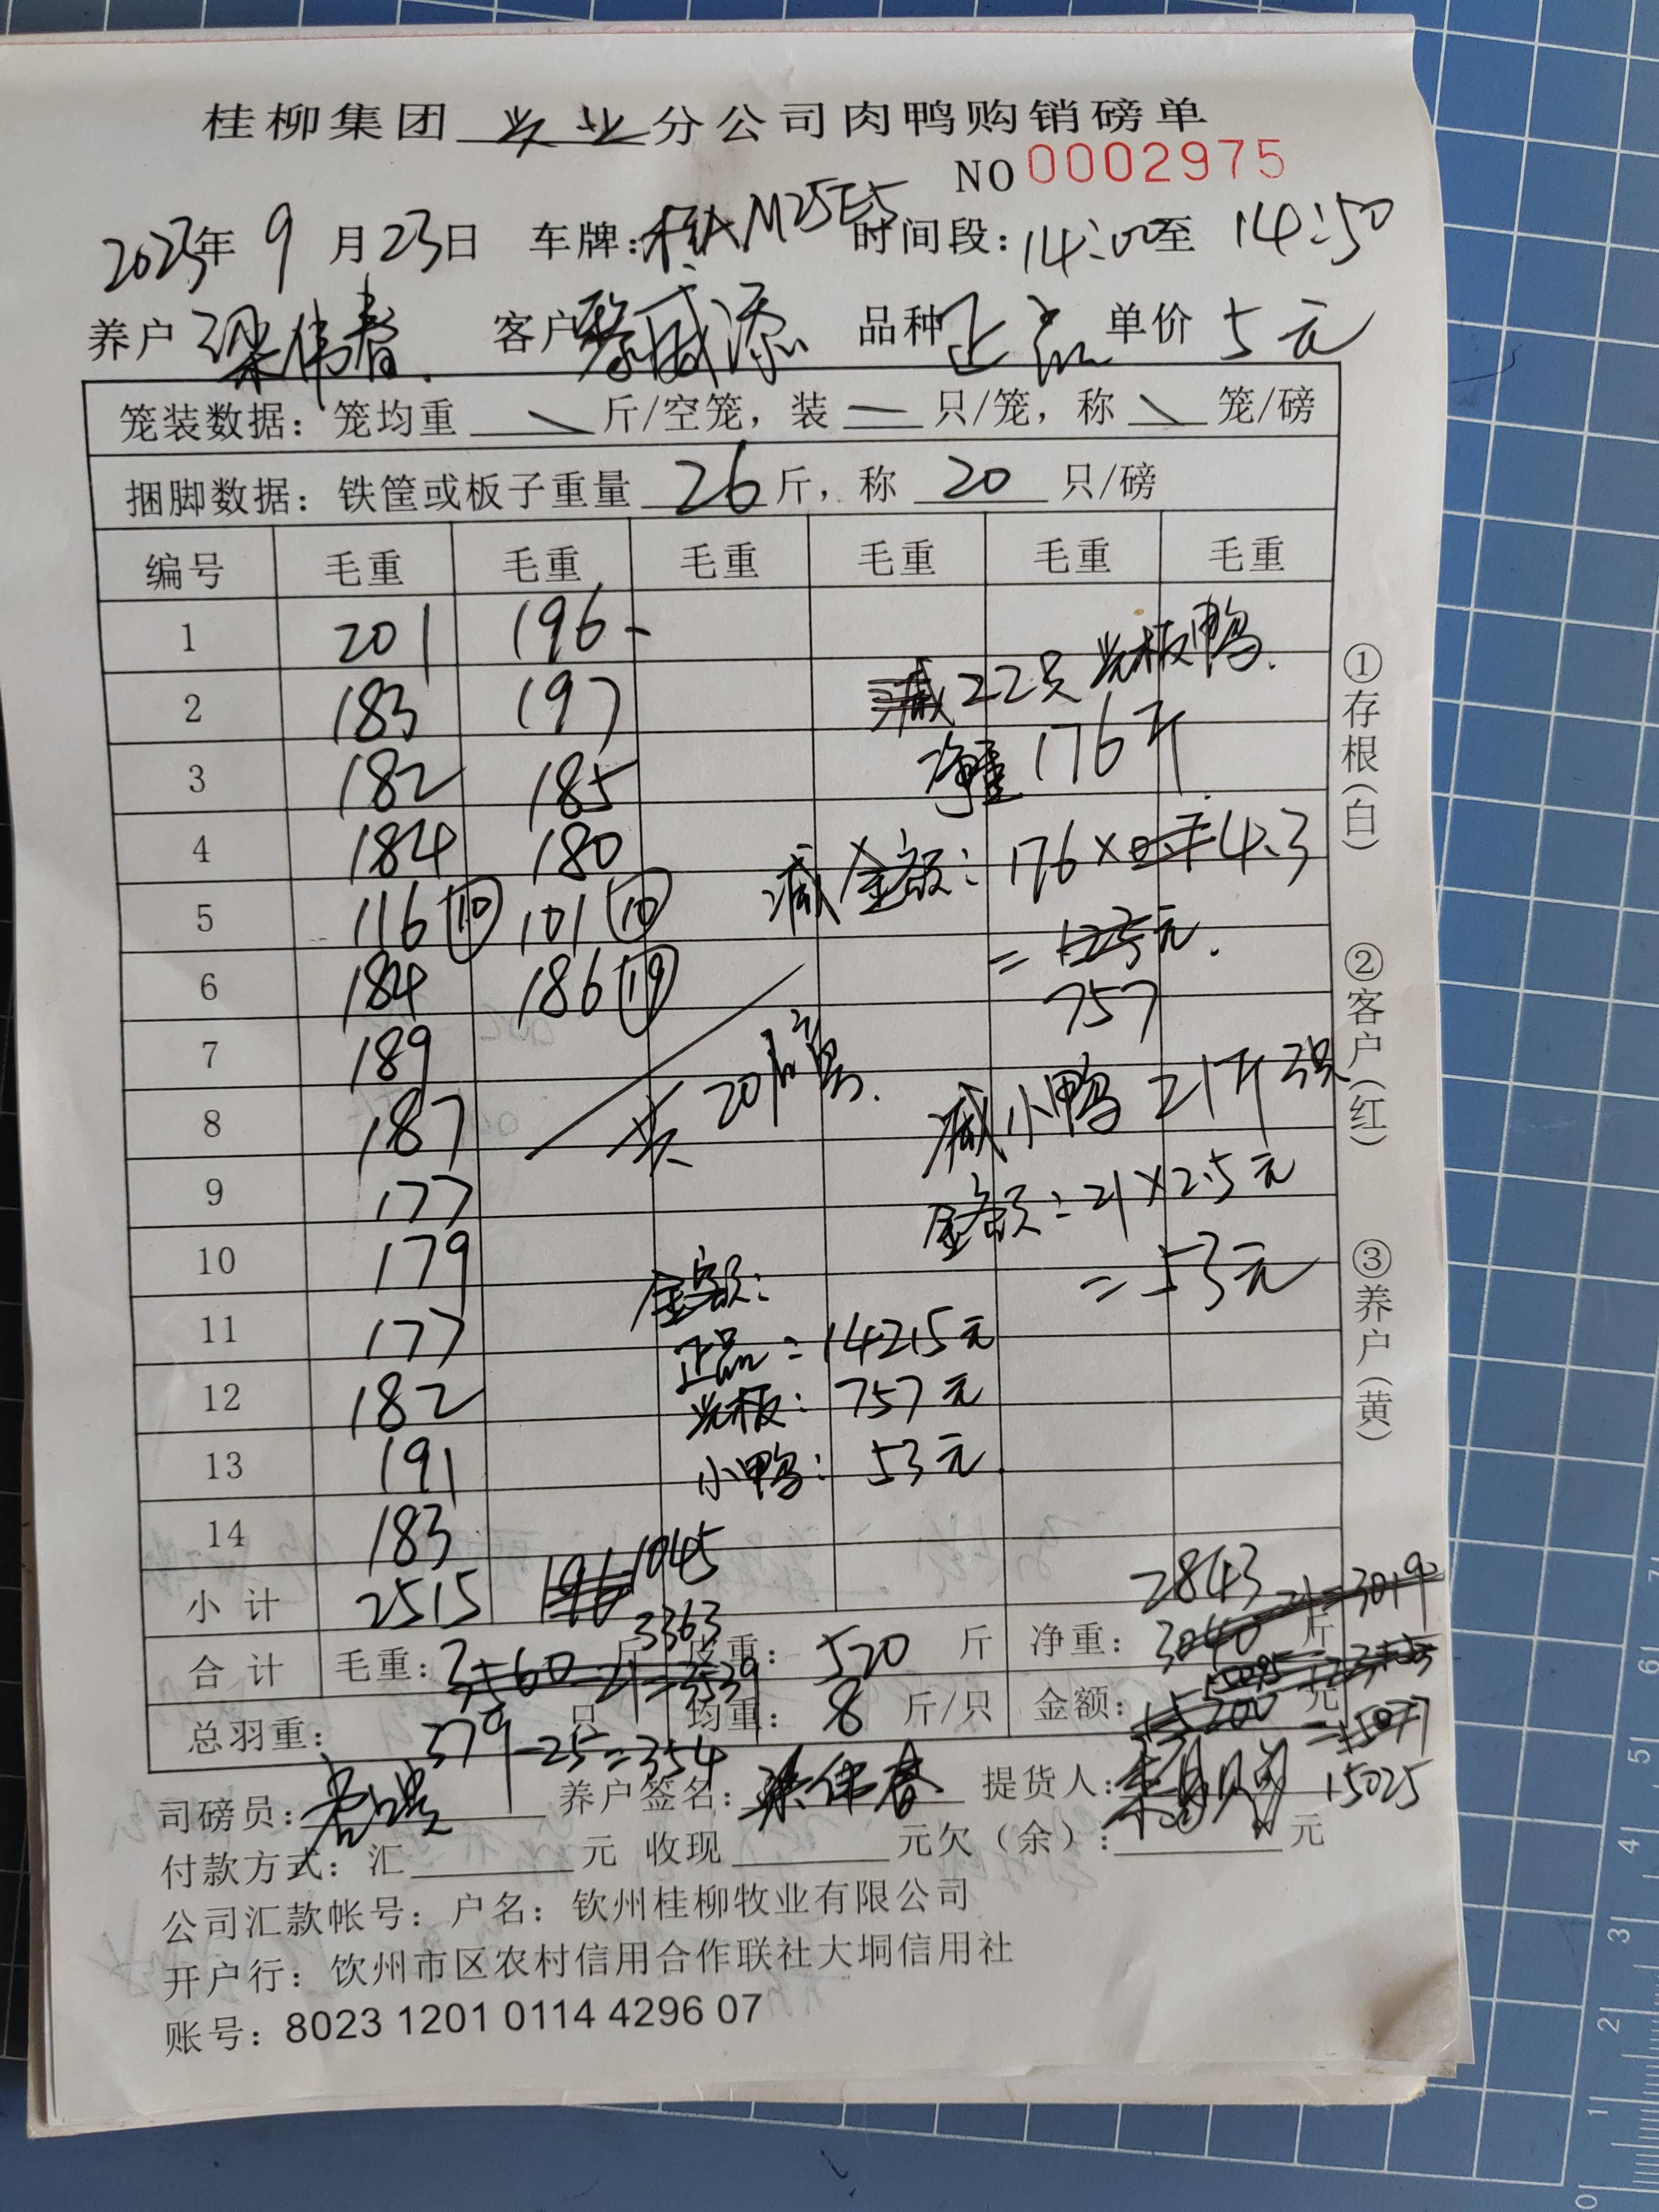 桂柳集团 兴业 分公司肉鸭购销磅单
NO 0002975
2023年 9 月 23日 车牌:桂AM25E5 时间段:14:00至 14:50
养户 梁伟春 客户 黎威添 品种 正品 单价 5元
笼装数据：笼均重 斤/空笼，装 只/笼，称 笼/磅
捆脚数据：铁筐或板子重量 26 斤，称 20 只/磅
编号 毛重 毛重 毛重 毛重 毛重 毛重
1 201 196
2 183 197
3 182 185
4 184 180
5 116 ⑩ 101 ⑩
6 184 186 ⑲
7 189
8 187
9 177
10 179
11 177
12 182
13 191
14 183
减22只光板鸭.
净重 176斤
减金额：176×4.3
= 元.
757
共 20
减小鸭 21斤 3只
金额=21×2.5元
=53元
金额：
正品=14215元
光板：757元
小鸭：53元
小计 2515 1045
合计 毛重： 3363 斤 皮重： 520 斤 净重： 2843 斤
总羽重： 379-25=354 只 均重： 8 斤/只 金额： 15025 元
司磅员： 养户签名：梁伟春 提货人：
付款方式：汇 元 收现 元欠（余）： 元
公司汇款帐号：户名：钦州桂柳牧业有限公司
开户行：钦州市区农村信用合作联社大垌信用社
账号：8023 1201 0114 4296 07
①存根(白)
②客户(红)
③养户(黄)
0
1
2
3
4
5
6
7